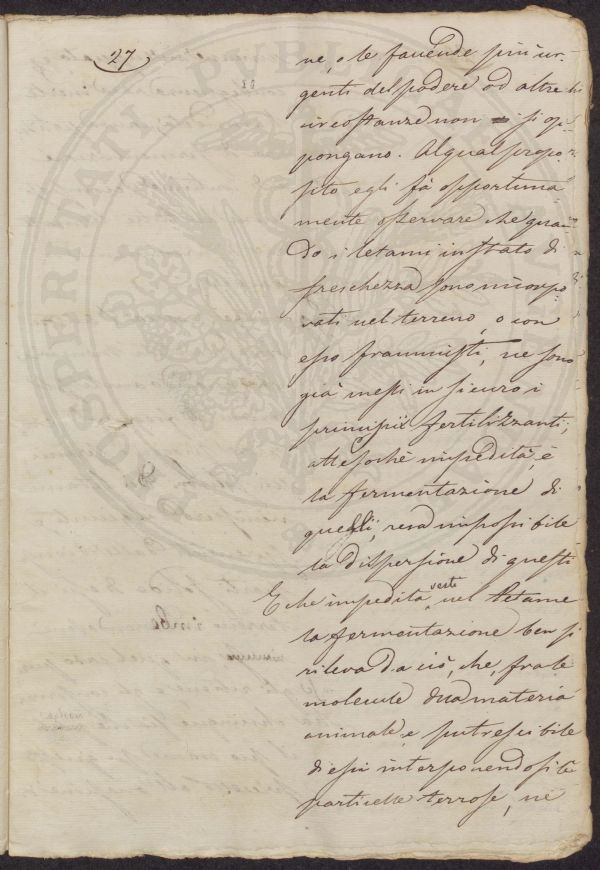 27
ne, o le faccende più ur-
genti del podere od altre
circostanze non si op-
pongano. Al qual propo-
sito egli fà opportuna-
mente osservare che quan-
do i letami in stato di
freschezza sono incorpo-
rati nel terreno, o con
esso frammisti, ne sono
già messi in sicuro i
principii fertilizzanti,
attesochè impedita, è
la fermentazione di
quelli, resa impossibile
la dispersione di questi
E che impedita resti nel letame
la fermentazione ben si
rileva da ciò, che, fra le
molecule d'una materia
animale, e putrescibile
di essi interponendosi le
particelle terrose, ne
PROSPERITATI PUBLICAE